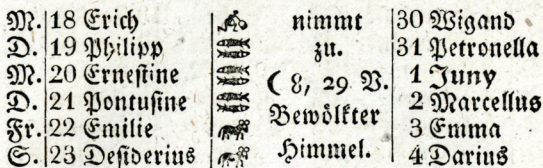 M. 18 Erich nimmt 30 Wigand
D. 19 Philipp zu. 31 Petronella
M. 20 Ernestine ( 8, 29 V. 1 Juny
D. 21 Pontusine Bewölkter 2 Marcellus
Fr. 22 Emilie Himmel. 3 Emma
S. 23 Desiderius 4 Darius